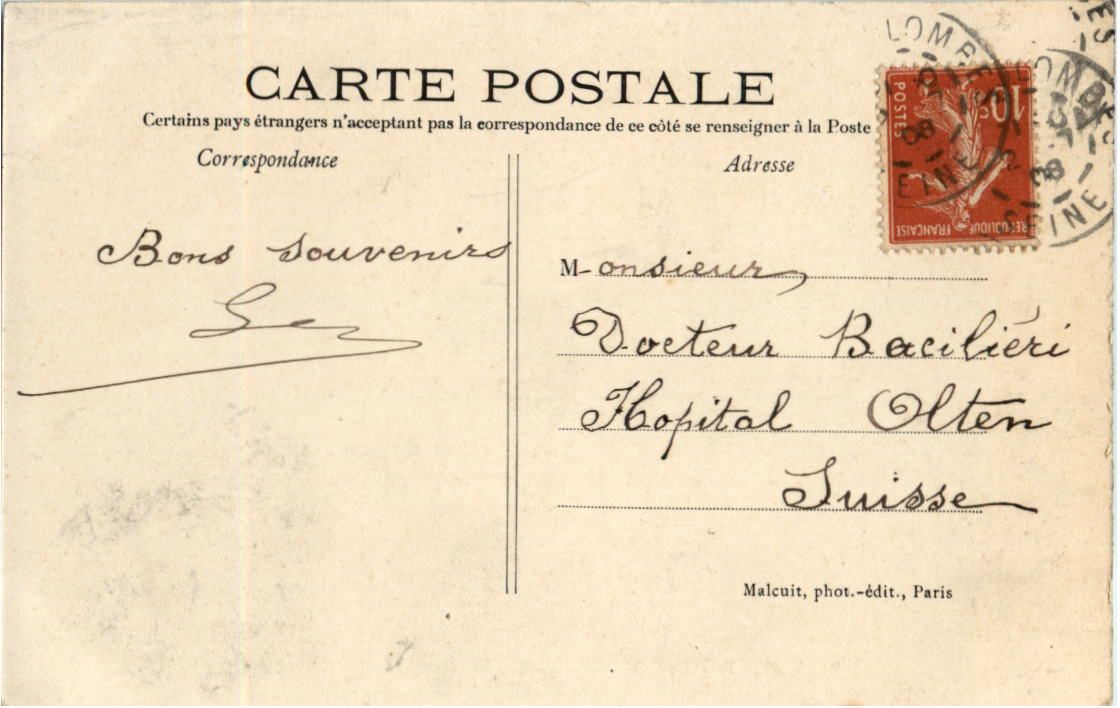 CARTE POSTALE
Certains pays étrangers n'acceptant pas la correspondance de ce côté se renseigner à la Poste
Correspondance
Adresse
Bons souvenirs
Monsieur,
Docteur Baciliéri
Hopital Olten
Suisse
Malcuit, phot.-édit., Paris
10c
POSTES
REPUBLIQUE FRANÇAISE
LOMBES
08
SEINE
LOMBES
08
SEINE